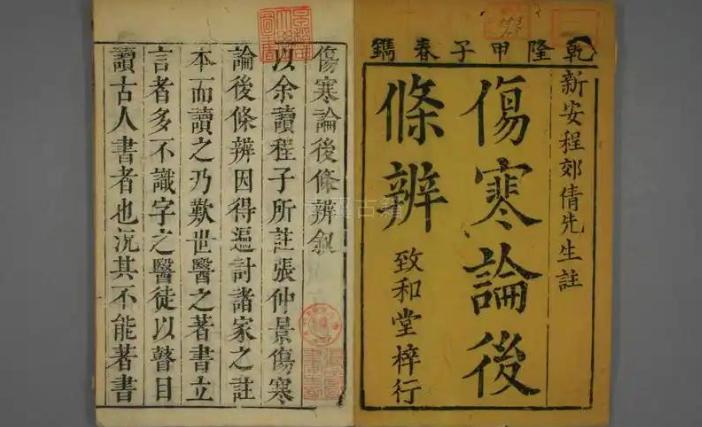 乾隆甲子春鐫
新安程郊倩先生註
傷寒論後
條辨
致和堂梓行
傷寒論後條辨敘
以余讀程子所註張仲景傷寒
論後條辨因得遍討諸家之註
本而讀之乃歎世醫之著書立
言者多不識字之醫徒以瞽目
讀古人書者也況其不能著書